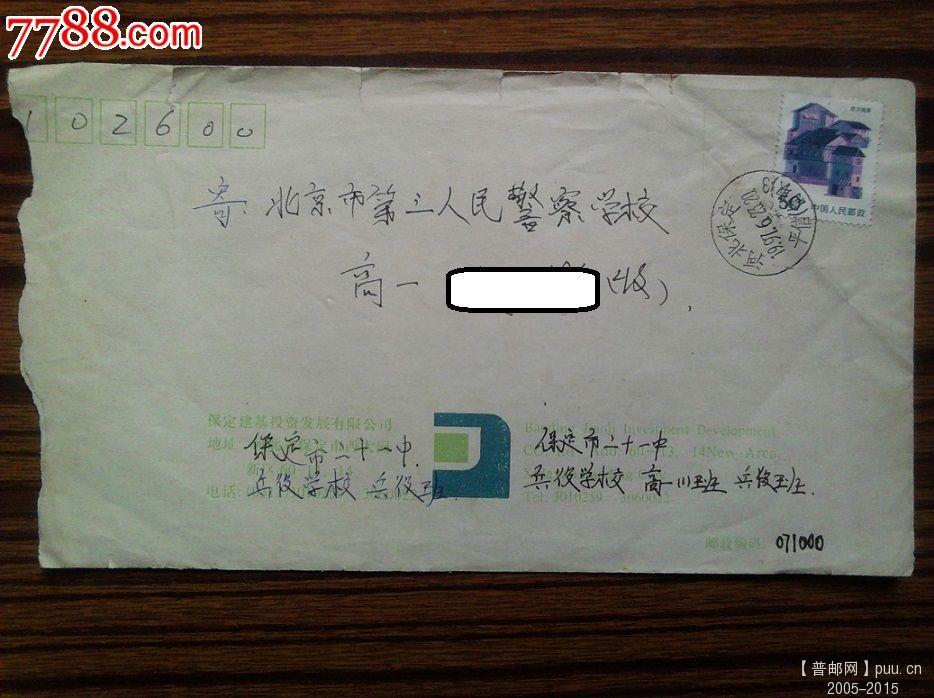 7788.com
102600
寄: 北京市第三人民警察学校
高一 (收)
中国人民邮政
河北保定
保定建基投资发展有限公司
地址
电话:
保定市二十一中.
兵役学校 兵役班.
Investment Development
14New Area,
Tel: 3010259 3060022
保定市二十一中
兵役学校 高一(1)班 兵役班.
邮政编码: 071000
【普邮网】puu.cn
2005-2015